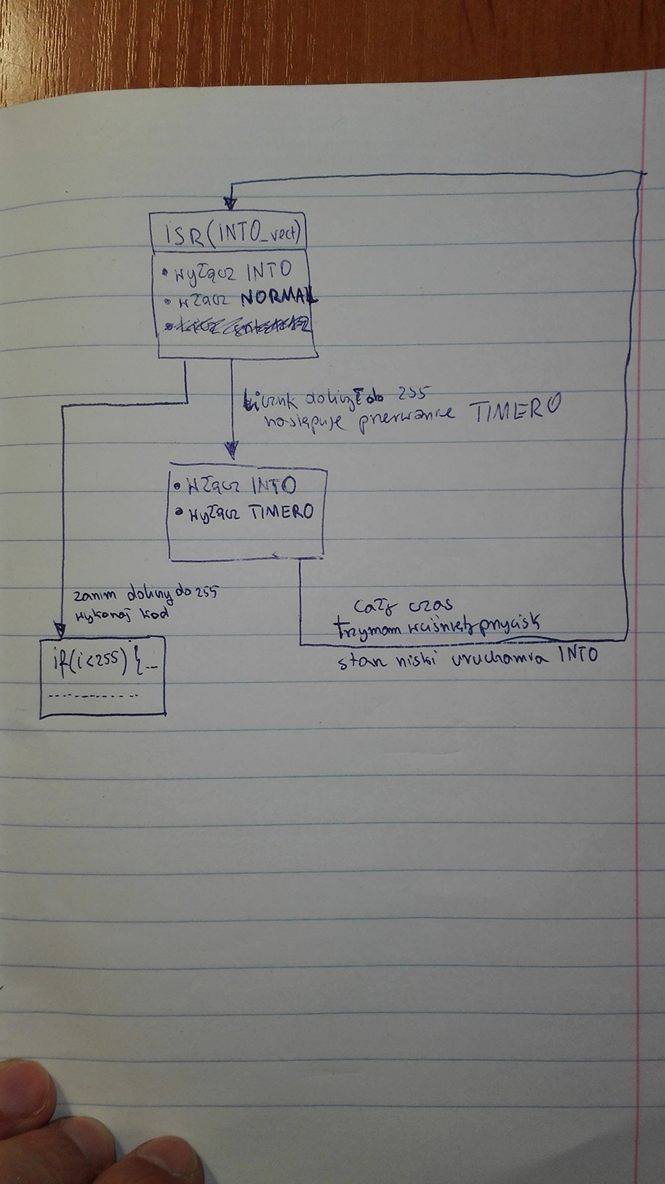 ISR(INT0_vect)
• wyłącz INT0
• włącz NORMAL
licznik doliczył do 255
następuje przerwanie TIMER0
• włącz INT0
• wyłącz TIMER0
zanim doliczy do 255
wykonaj kod
if(i<255) {...
cały czas
trzymam wciśnięty przycisk
stan niski uruchamia INT0